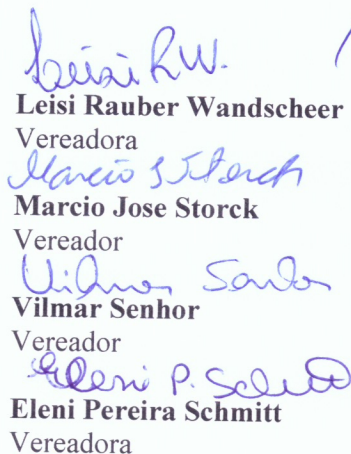 Leisi R.W.
Leisi Rauber Wandscheer
Vereadora
Marcio J Storck
Marcio Jose Storck
Vereador
Vilmar
Vilmar Senhor
Vereador
Eleni P. Schmitt
Eleni Pereira Schmitt
Vereadora